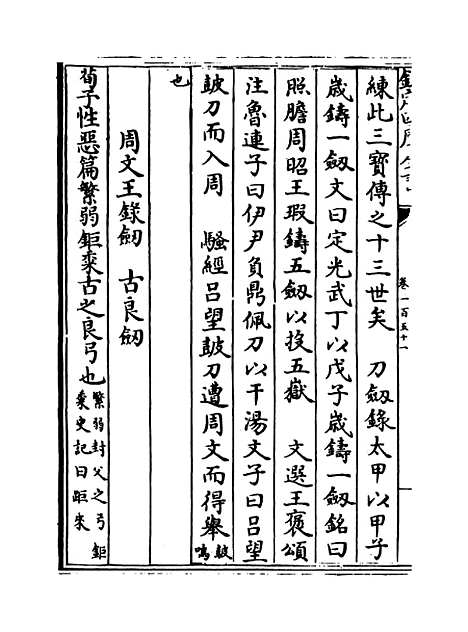 練此三寳傳之十三世矣　刀劔錄太甲以甲子
歲鑄一劔文曰定光武丁以戊子歲鑄一劔銘曰
照膽周昭王瑕鑄五劔以投五嶽　文選王褒頌
注魯連子曰伊尹負鼎佩刀以干湯文子曰吕望
鼓刀而入周　騷經吕望鼓刀遭周文而得舉鼓鳴
也
周文王錄劔　古良劔
荀子性惡篇繁弱鉅𮮐古之良弓也繁弱封父之弓鉅
𮮐史記曰距來
卷一百五十一